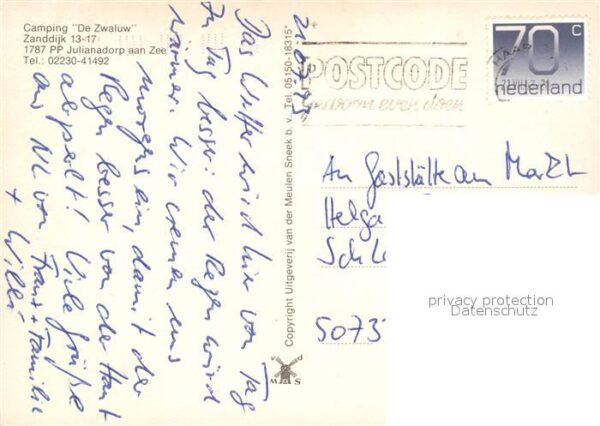 Camping "De Zwaluw"
Zanddijk 13-17
1787 PP Julianadorp aan Zee
Tel.: 02230-41492
Das Wetter wird hier von Tag
zu Tag besser: der Regen wird
wärmer. Wir cremen uns
morgens ein, damit der
Regen besser von der Haut
abperlt! Viele Grüße
aus NL von Franz + Familie
+ Willi
Copyright Uitgeverij van der Meulen Sneek b. v. Tel. 05150-18315*
v d
MAS
POSTCODE
gewoon even doen
70 c
nederland
An Gaststätte am Markt
Helga
5073
privacy protection
Datenschutz